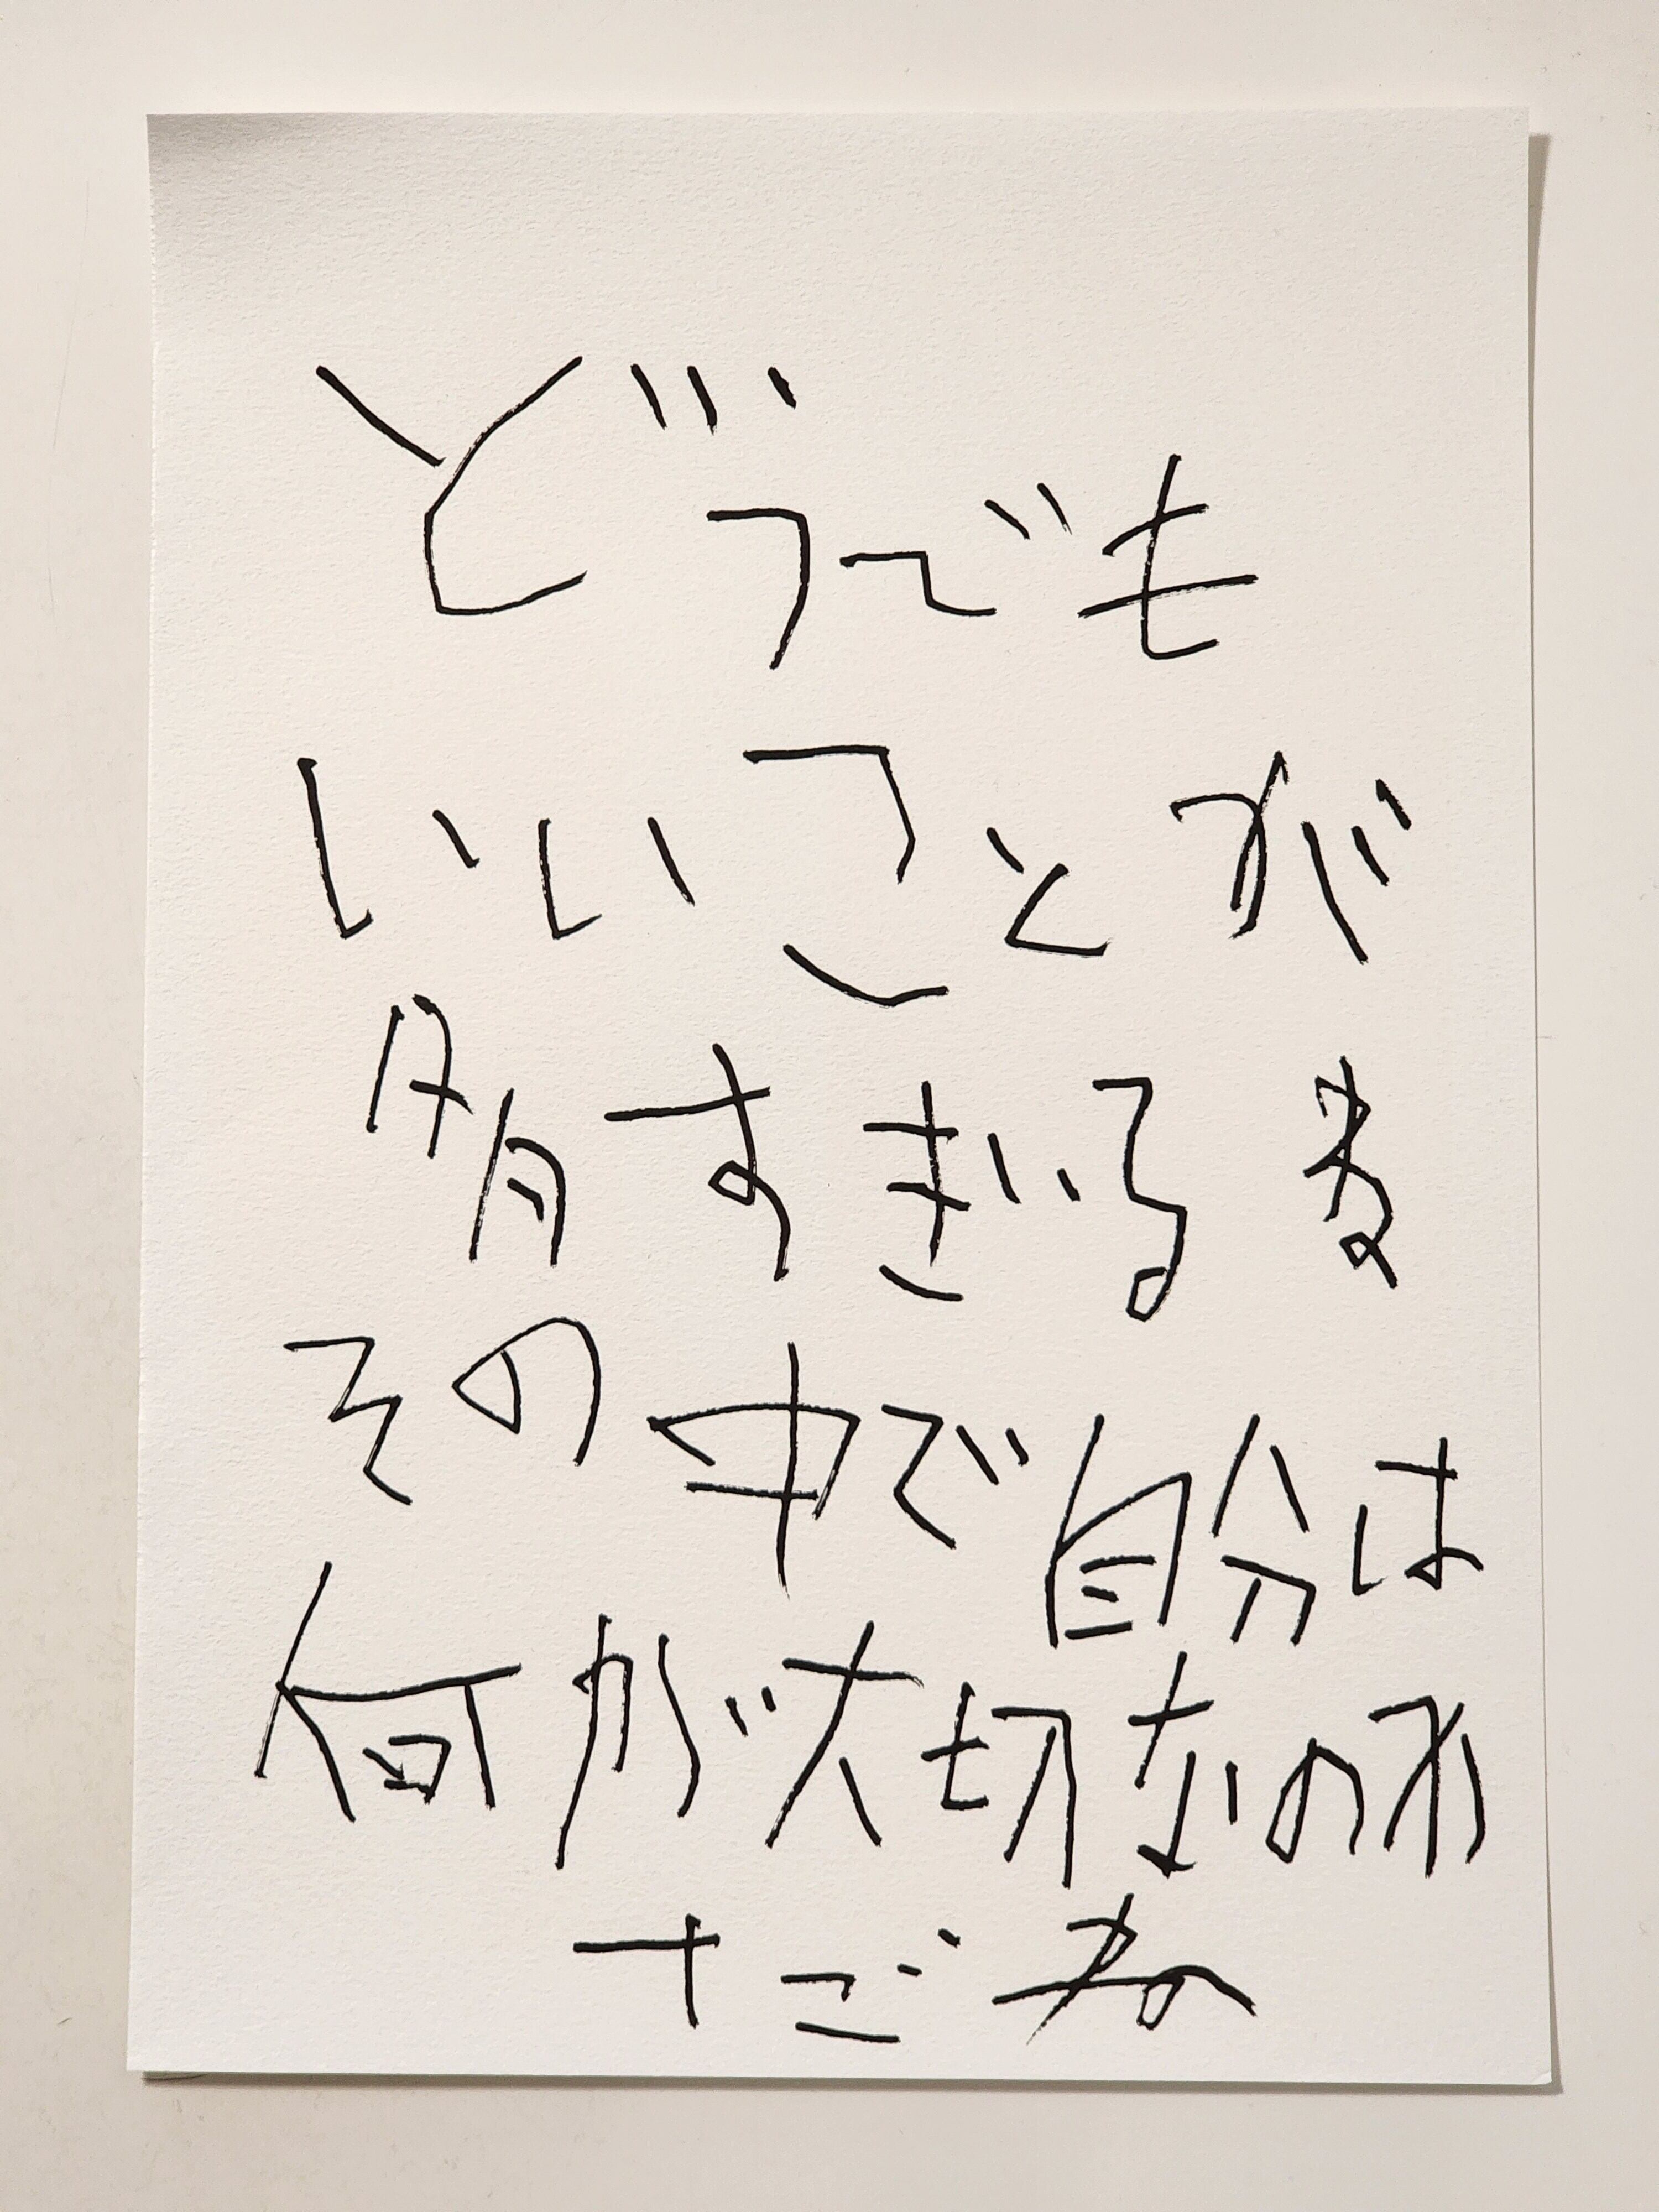 どうでも
いいことが
多すぎる
その中で自分は
何が大切なのか